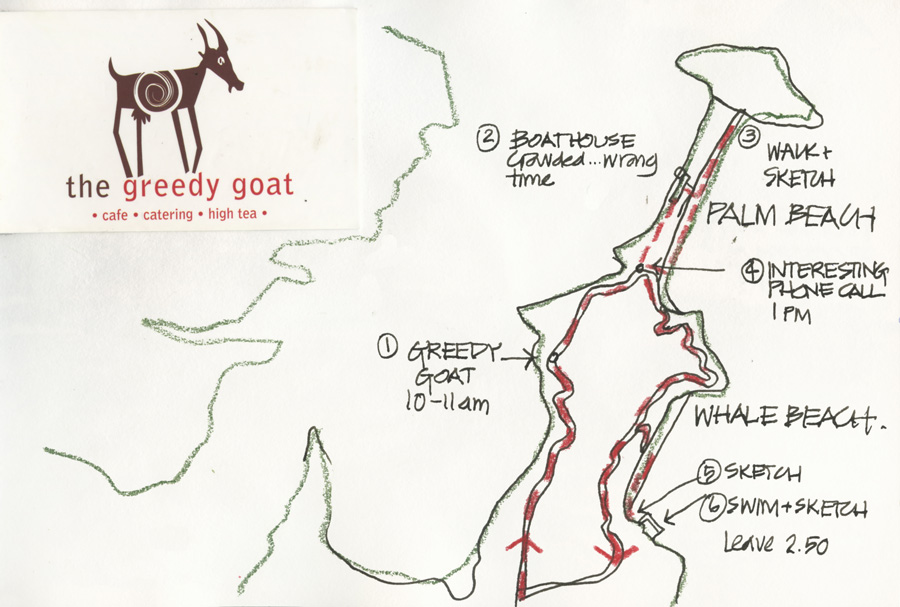 the greedy goat
• cafe • catering • high tea •
② BOATHOUSE
Crowded...wrong
time
③
WALK +
SKETCH
PALM BEACH
④ INTERESTING
PHONE CALL
1 PM
① GREEDY
GOAT
10-11am
WHALE BEACH.
⑤ SKETCH
⑥ SWIM + SKETCH
Leave 2.50